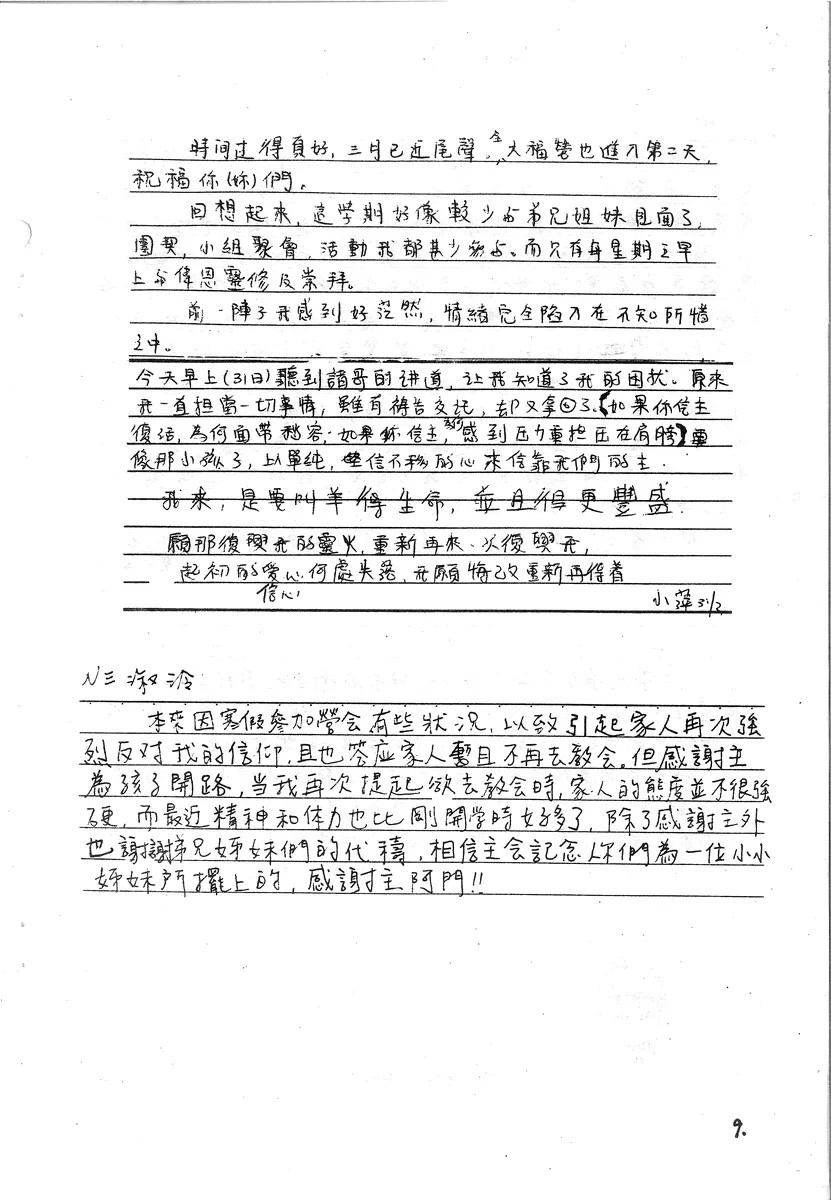 時间过得真好，三月已近尾聲，全大福營也進入第二天，
祝福你(妳)們。
回想起來，這學期好像較少与弟兄姐妹見面了，
團契，小組聚會，活動我都甚少參与。而只有每星期之早
上与偉恩靈修及崇拜。
前一陣子我感到好茫然，情緒完全陷入在不知所措
之中。
今天早上(31日)聽到諸哥的讲道，让我知道了我的困扰。原來
我一直担當一切事情，雖有禱告交託，却又拿回了。【如果你信主
復活，為何面帶愁容，如果你信主，感到压力重担压在肩膀】要
像那小孩子，以單純，堅信不移的心來信靠我們的主．
我來，是要叫羊得生命，並且得更豐盛．
願那復興我的靈火，重新再來，以復興我，
起初的愛心何處失落，我願悔改重新再得着
信心
小萍31/3
N三淑泠
本來因寒假參加營会有些狀況，以致引起家人再次強
烈反对我的信仰，且也答应家人暫且不再去教会。但感謝主
為孩子開路，當我再次提起欲去教会時，家人的態度並不很強
硬，而最近精神和体力也比剛開学時好多了，除了感謝主外
也謝謝弟兄姊妹們的代禱，相信主会記念你們為一位小小
姊妹所擺上的，感謝主阿門!!
9.